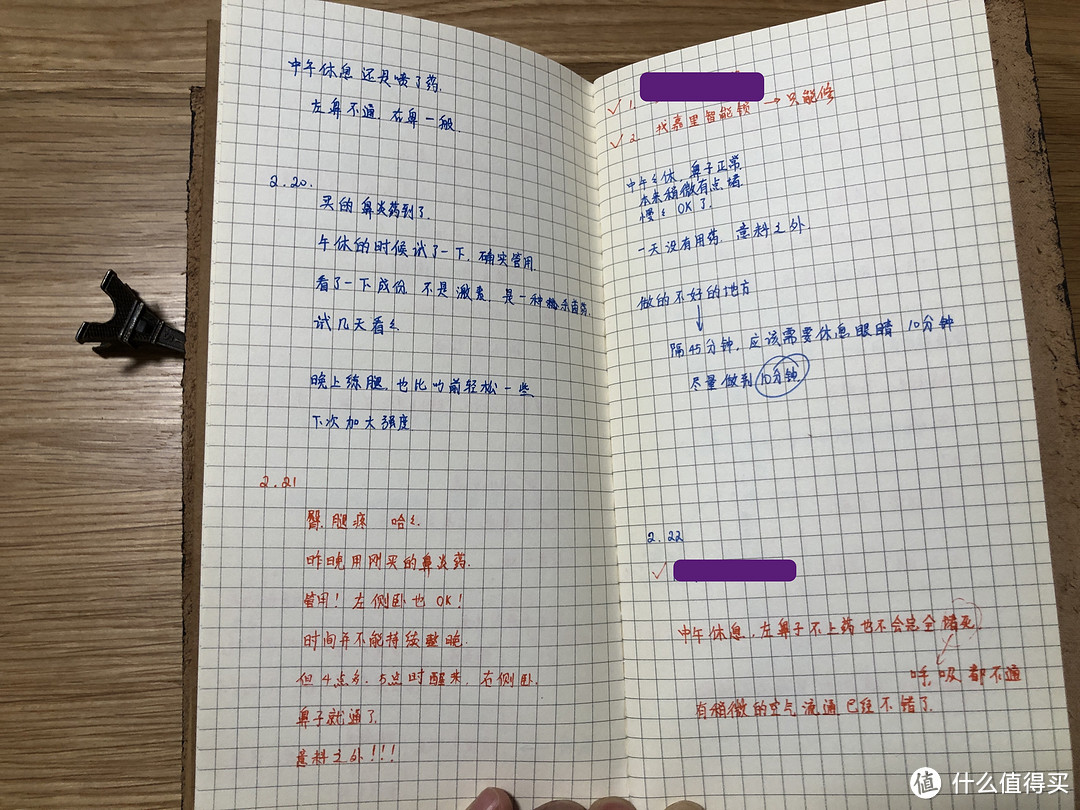 中午休息 还是喷了药.
左鼻不通, 右鼻一般
2.20.
买的鼻炎药到了.
午休的时候试了一下, 确实管用.
看了一下成份, 不是激素, 是一种杀菌药.
试几天看々.
晚上练腿, 也比以前轻松一些
下次加大强度
2.21
臀.腿疼 哈々.
昨晚用刚买的鼻炎药.
管用! 左侧卧也 OK!
时间并不能持续整晚.
但4点多. 5点时醒来, 右侧卧.
鼻子就通了.
意料之外!!!
✓ 1
✓ 2 找嘉里智能锁 → 只能修
中午々休, 鼻子正常
本来稍微有点堵
慢々 OK了.
一天没有用药. 意料之外.
做的不好的地方
↓
隔45分钟, 应该需要休息眼睛 10分钟
尽量做到 10分钟
2.22
✓
中午休息, 左鼻子不上药也不会完全堵死.
呼.吸都不通
有稍微的空气流通已经不错了.
值 什么值得买